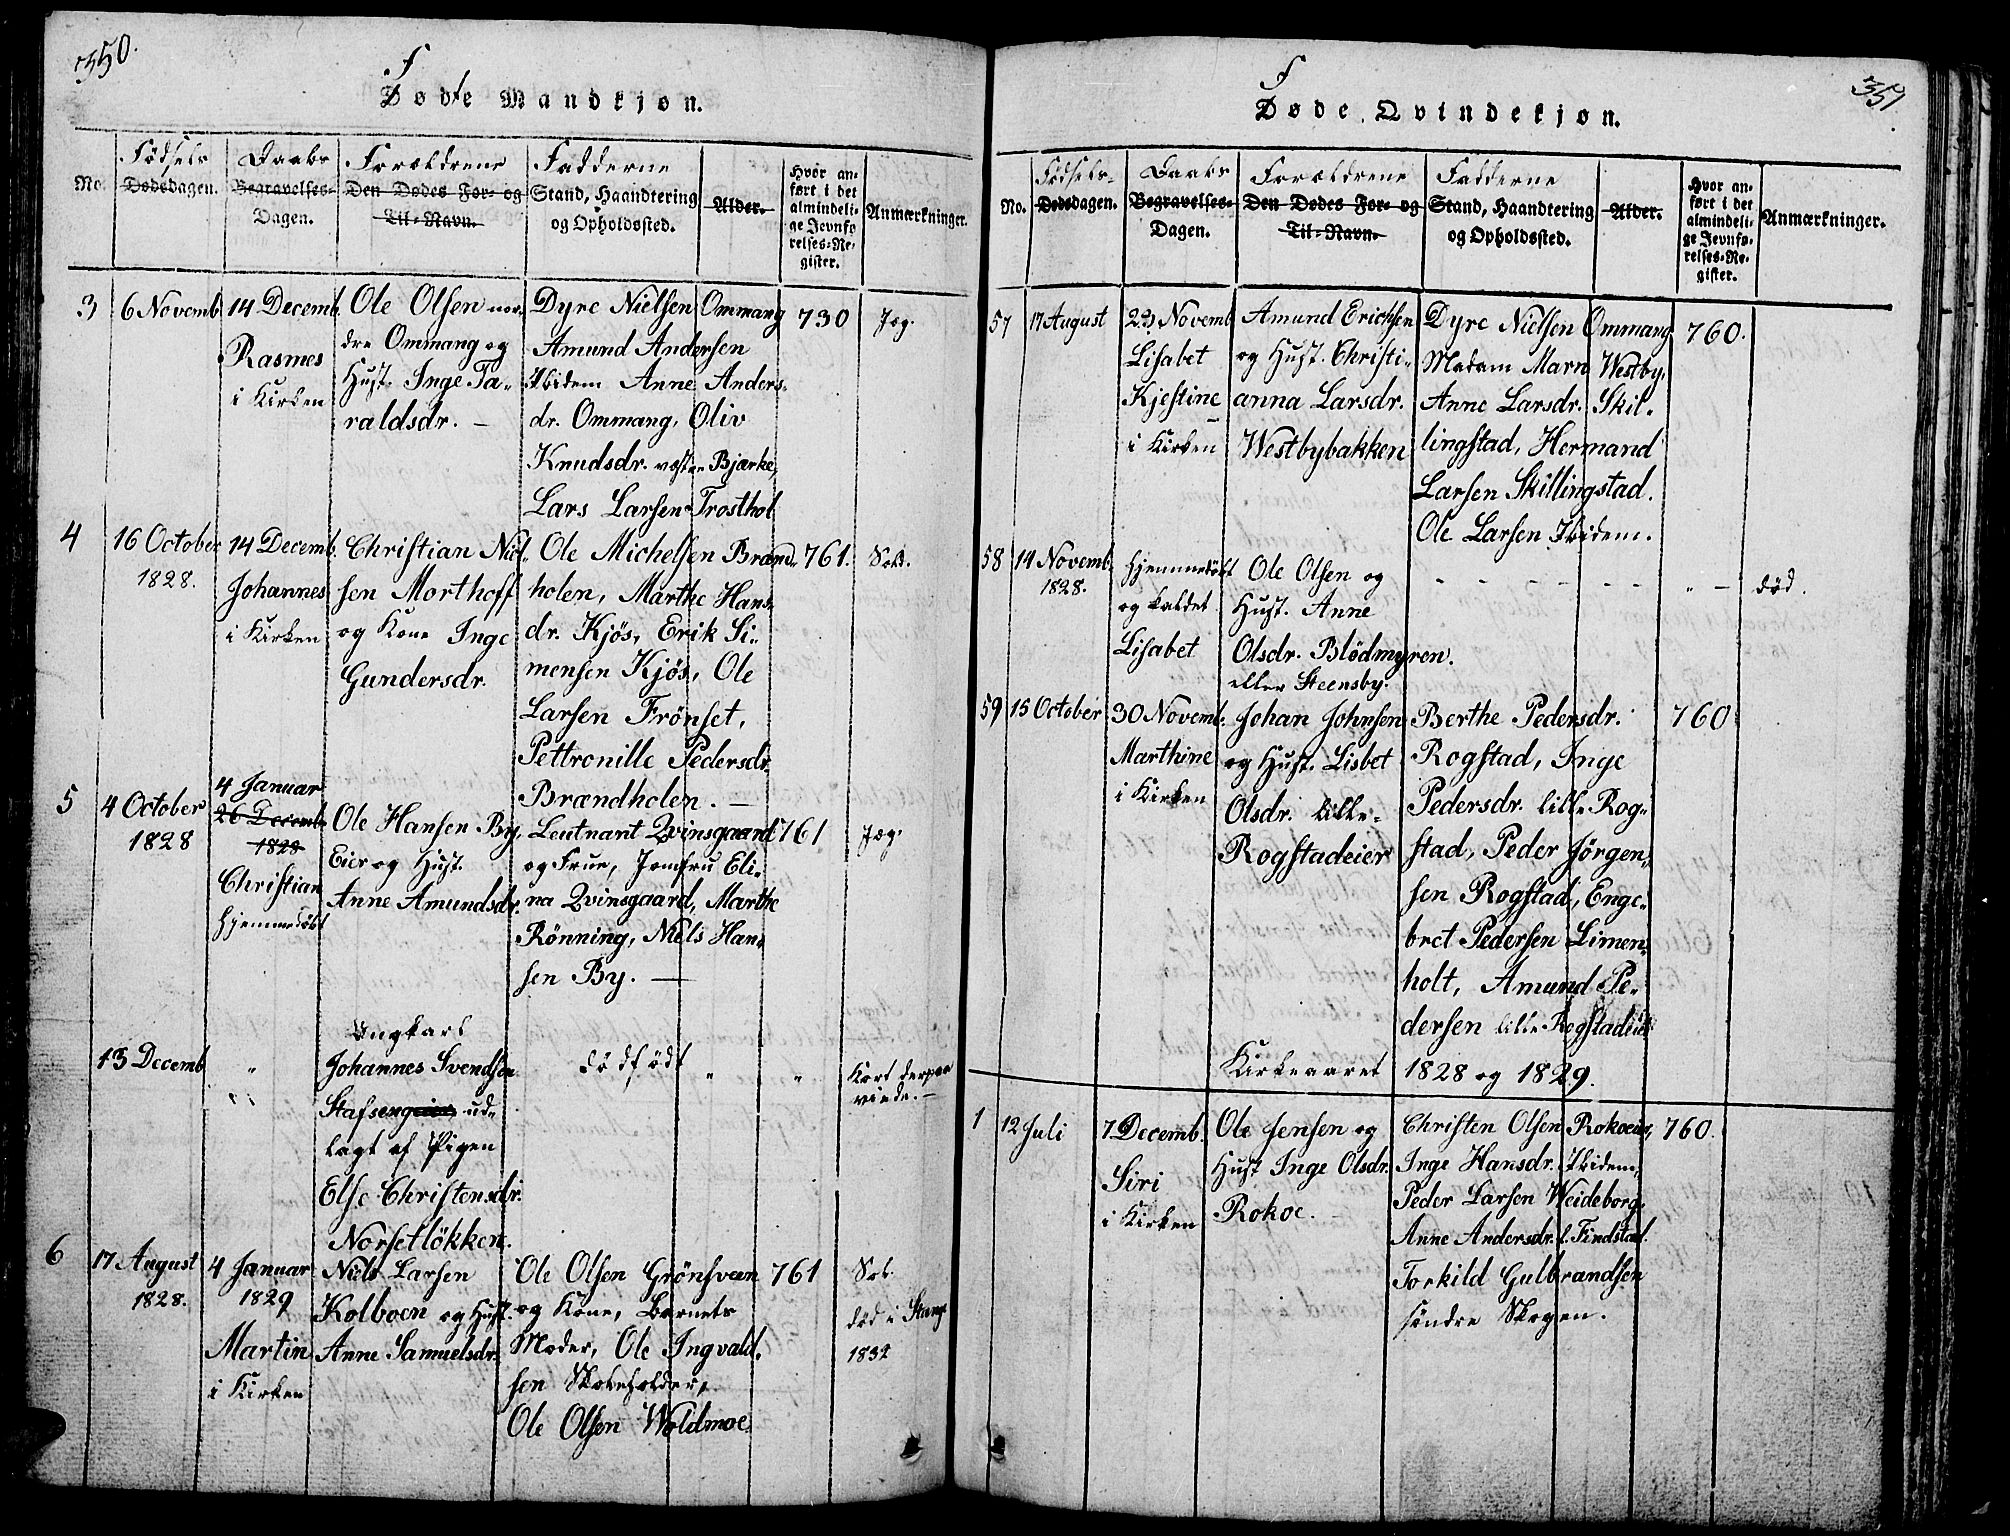 350.
F
Døde Mandkjøn.
No.
Fødsels
Dødsdagen.
Daabs
Begravelses-
Dagen.
Forældrene
Den Dødes For- og
Til-Navn.
Fadderne
Stand, Haandtering
og Opholdssted.
Alder.
Hvor an-
ført i det
almindeli-
ge Jevnfø-
relses-Re-
gister.
Anmærkninger.
3
6 Novemb
14 Decemb.
Rasmes
i Kirken
Ole Olsen nor-
dre Ommang og
Hust. Inge Ta-
raldsdr. –
Dyre Nielsen Ommang
Amund Andersen
Ibidem Anne Anders-
dr. Ommang, Oliv
Knudsdr. vestre Bjærke,
Lars Larsen Trosthol
730
Jæg.
4
16 October
1828.
14 Decemb.
Johannes
i Kirken
Christian Niel-
sen Morthoff
og Kone Inge
Gundersdr.
Ole Michelsen Brænd-
holen, Marthe Hans-
dr. Kjøs, Erik Si-
mensen Kjøs, Ole
Larsen Frönset,
Pettronille Pedersdr.
Brændholen. –
761.
Sold.
5
4 October
1828
4 Januar
26 Decemb.
1828
Christian
hjemmedöbt
Ole Hansen By
Eier og Hust.
Anne Amundsdr.
Leutnant Qvinsgaard
og Frue, Jomfru Eli-
na Qvinsgaard, Marthe
Rönning, Niels Han-
sen By. –
761
Jæg.
13 Decemb
"
Ungkarl
Johannes Svendsen
Stafsengeier ud-
lagt af Pigen
Else Christensdr.
Norsetlökken.
dödfödt
"
"
Kort derpaa
viede. –
6
17 August
1828.
4 Januar
1829
Martin
i Kirken
Niels Larsen
Kolboen og Hust.
Anne Samuelsdr.
Ole Olsen Grönsveen
og Kone, Barnets
Moder, Ole Ingvald-
sen Skoleholder,
Ole Olsen Woldmoe.
761
Sol.
död i Stange
1832
351
F
Døde Qvindekjøn.
No.
Fødsels-
Dødsdagen.
Daabs
Begravelses-
Dagen.
Forældrene
Den Dødes For- og
Til-Navn.
Fadderne
Stand, Haandtering
og Opholdssted.
Alder.
Hvor an-
ført i det
almindeli-
ge Jevnfø-
relses-Re-
gister.
Anmærkninger.
57
17 August
23 Novemb
Lisabet
Kjestine
i Kirken
Amund Erichsen
og Hust. Christi-
anna Larsdr.
Westbybakken
Dyre Nielsen Ommang
Madam Marn Westby,
Anne Larsdr. Skil-
lingstad, Hermand
Larsen Skillingstad.
Ole Larsen Ibidem.
760.
58
14 Novemb.
1828.
hjemmedöbt
og kaldet
Lisabet
Ole Olsen og
Hust. Anne
Olsdr. Blödmyren.
eller Steensby.
" –
död.
59
15 October
30 Novemb.
Marthine
i Kirken
Johan Johnsen
og Hust. Lisbet
Olsdr. lille-
Rogstadeier
Berthe Pedersdr.
Rogstad, Inge
Pedersdr. lille Rog-
stad, Peder Jörgen-
sen Rogstad, Enge-
bret Pedersen Limen-
holt, Amund Pe-
dersen lille Rogstadeie
760
Kirkeaaret 1828 og 1829.
1
12 Juli
7 Decemb.
Siri
i Kirken
Ole Jensen og
Hust Inge Olsdr.
Rokoe. –
Christen Olsen Rokoeier,
Inge Hansdr. Ibidem,
Peder Larsen Weideborg,
Anne Andersdr. l. Findstad.
Torkild Gulbrandsen
söndre Skogen.
760.